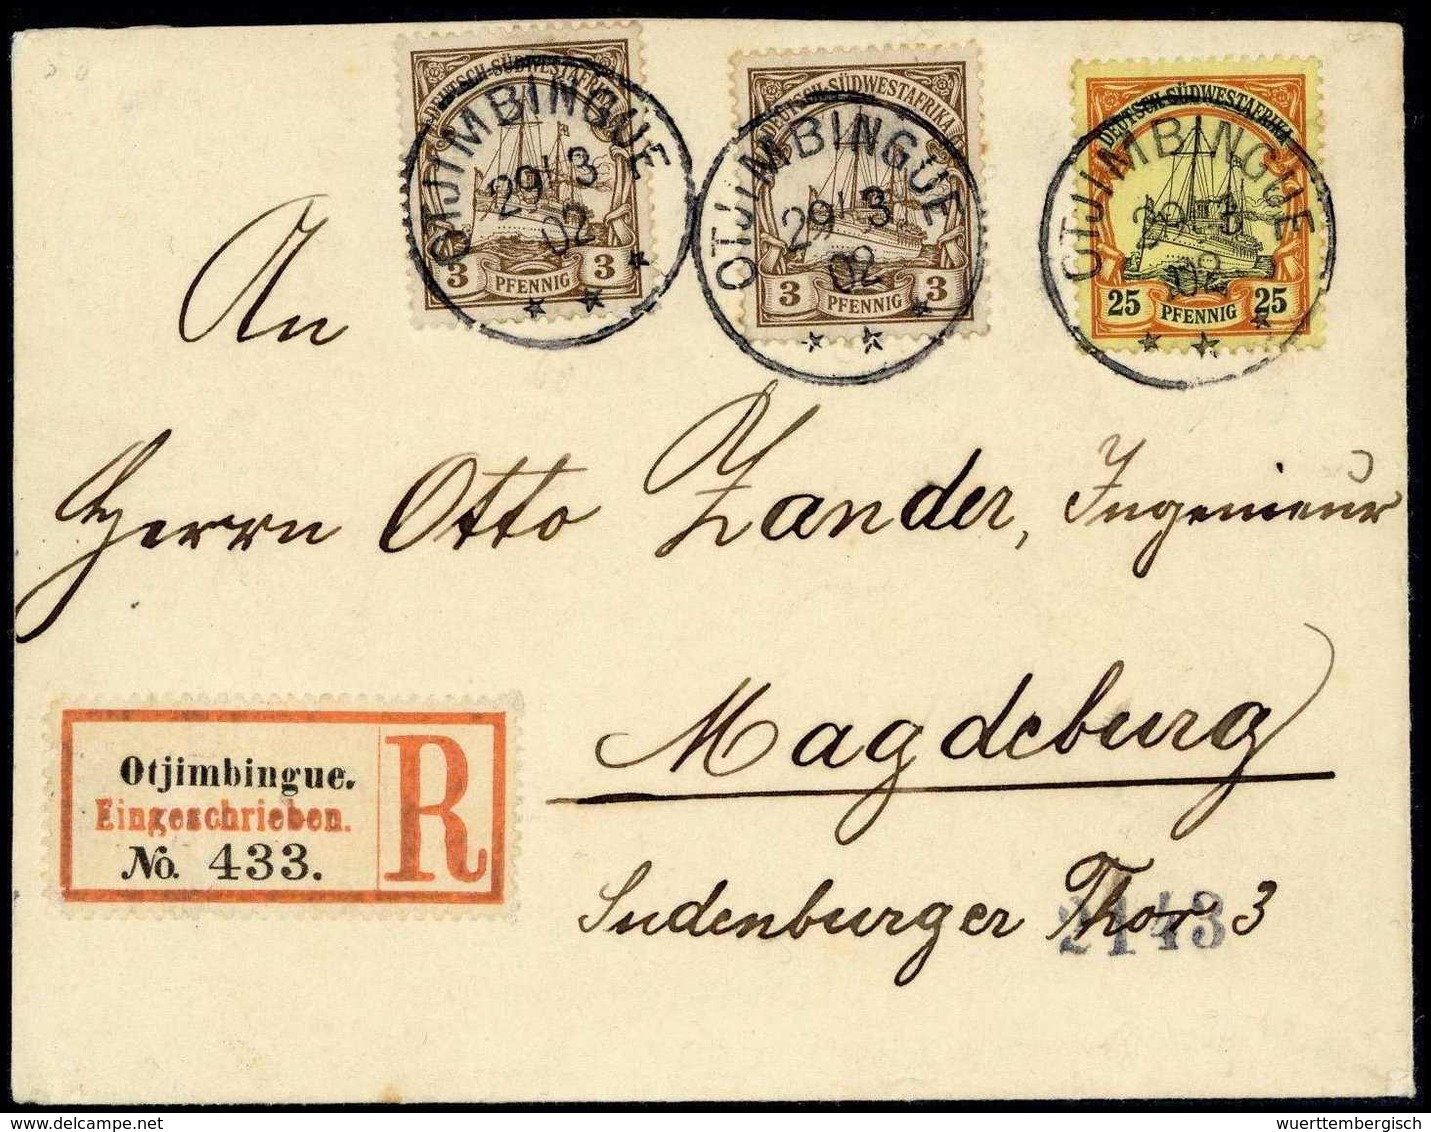 DEUTSCH-SÜDWESTAFRIKA
3 PFENNIG 3
OTJIMBINGUE
29 3
02
DEUTSCH-SÜDWESTAFRIKA
3 PFENNIG 3
OTJIMBINGUE
29 3
02
DEUTSCH-SÜDWESTAFRIKA
25 PFENNIG 25
OTJIMBINGUE
29 3
02
An
Herrn Otto Zander, Ingenieur
Magdeburg
Sudenburger Thor 3
Otjimbingue.
Eingeschrieben.
No. 433.
R
delcampe.net
wuerttembergisch